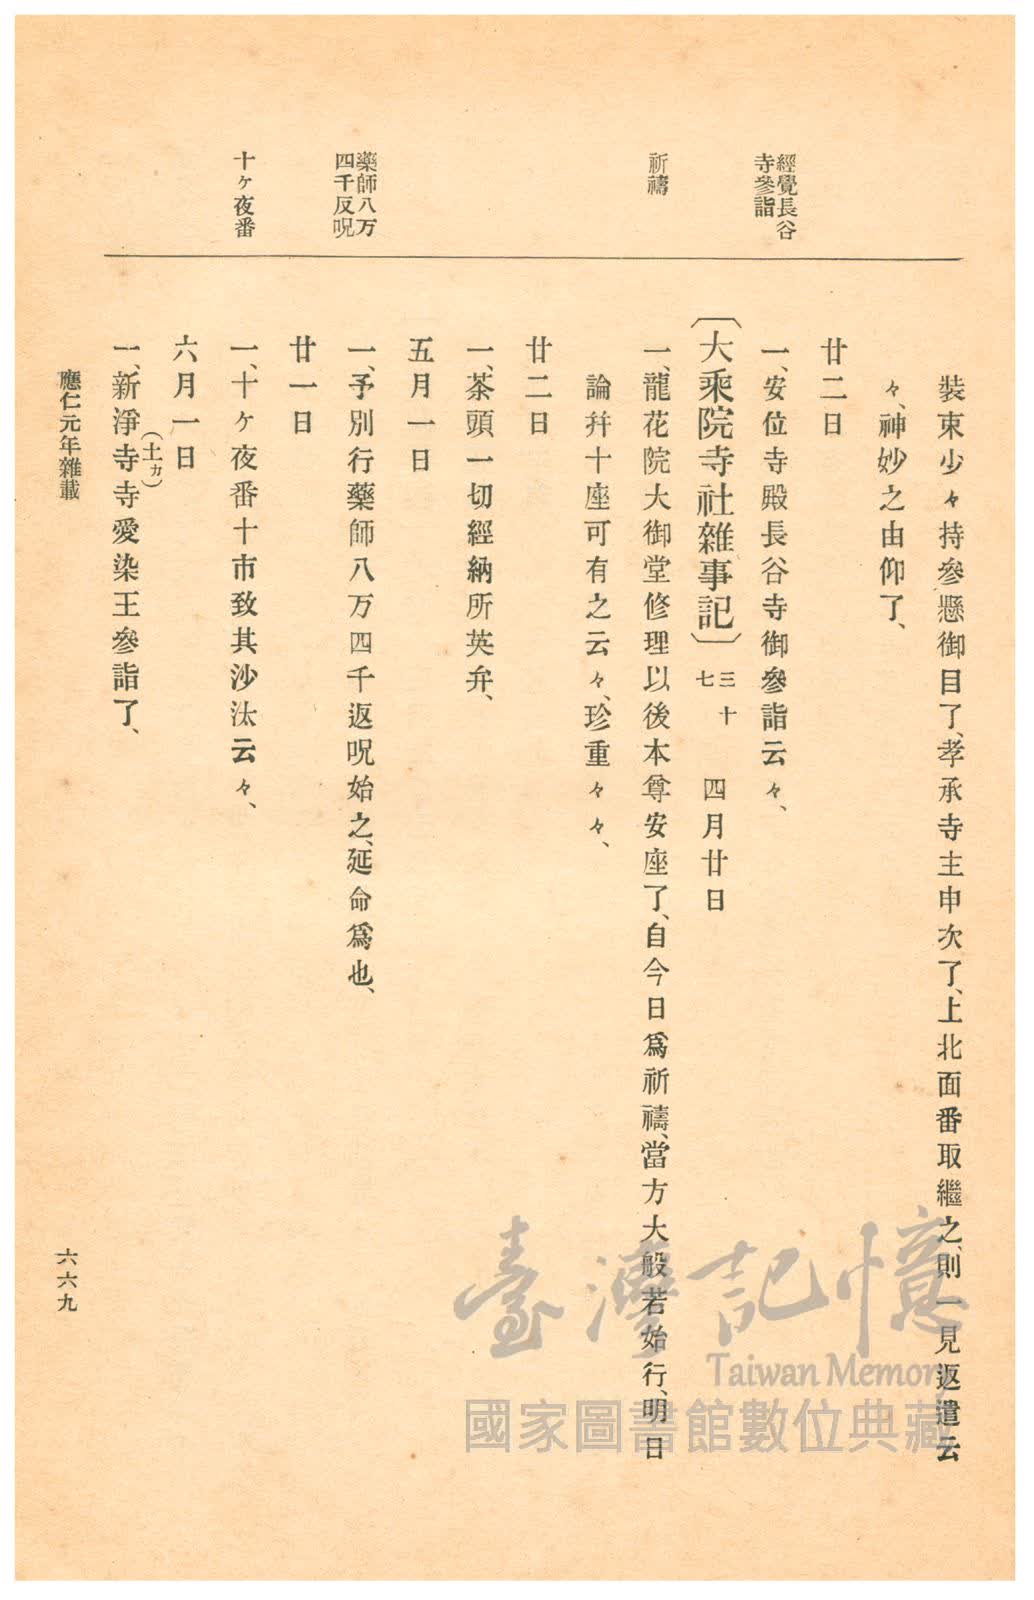 經覺長谷
寺參詣
祈禱
藥師八万
四千反呪
十ヶ夜番
裝束少々持參懸御目了、孝承寺主申次了、上北面番取繼之、則一見返遣云
々、神妙之由仰了、
廿二日
一、安位寺殿長谷寺御參詣云々、
〔大乘院寺社雜事記〕三十七 四月廿日
一、龍花院大御堂修理以後本尊安座了、自今日爲祈禱、當方大般若始行、明日
論幷十座可有之云々、珍重々々、
廿二日
一、茶頭一切經納所英弁、
五月一日
一、予別行藥師八万四千返呪始之、延命爲也、
廿一日
一、十ヶ夜番十市致其沙汰云々、
六月一日
一、新淨寺寺愛染王參詣了、
(土カ)
應仁元年雜載
六六九
臺灣記憶
Taiwan Memory
國家圖書館數位典藏